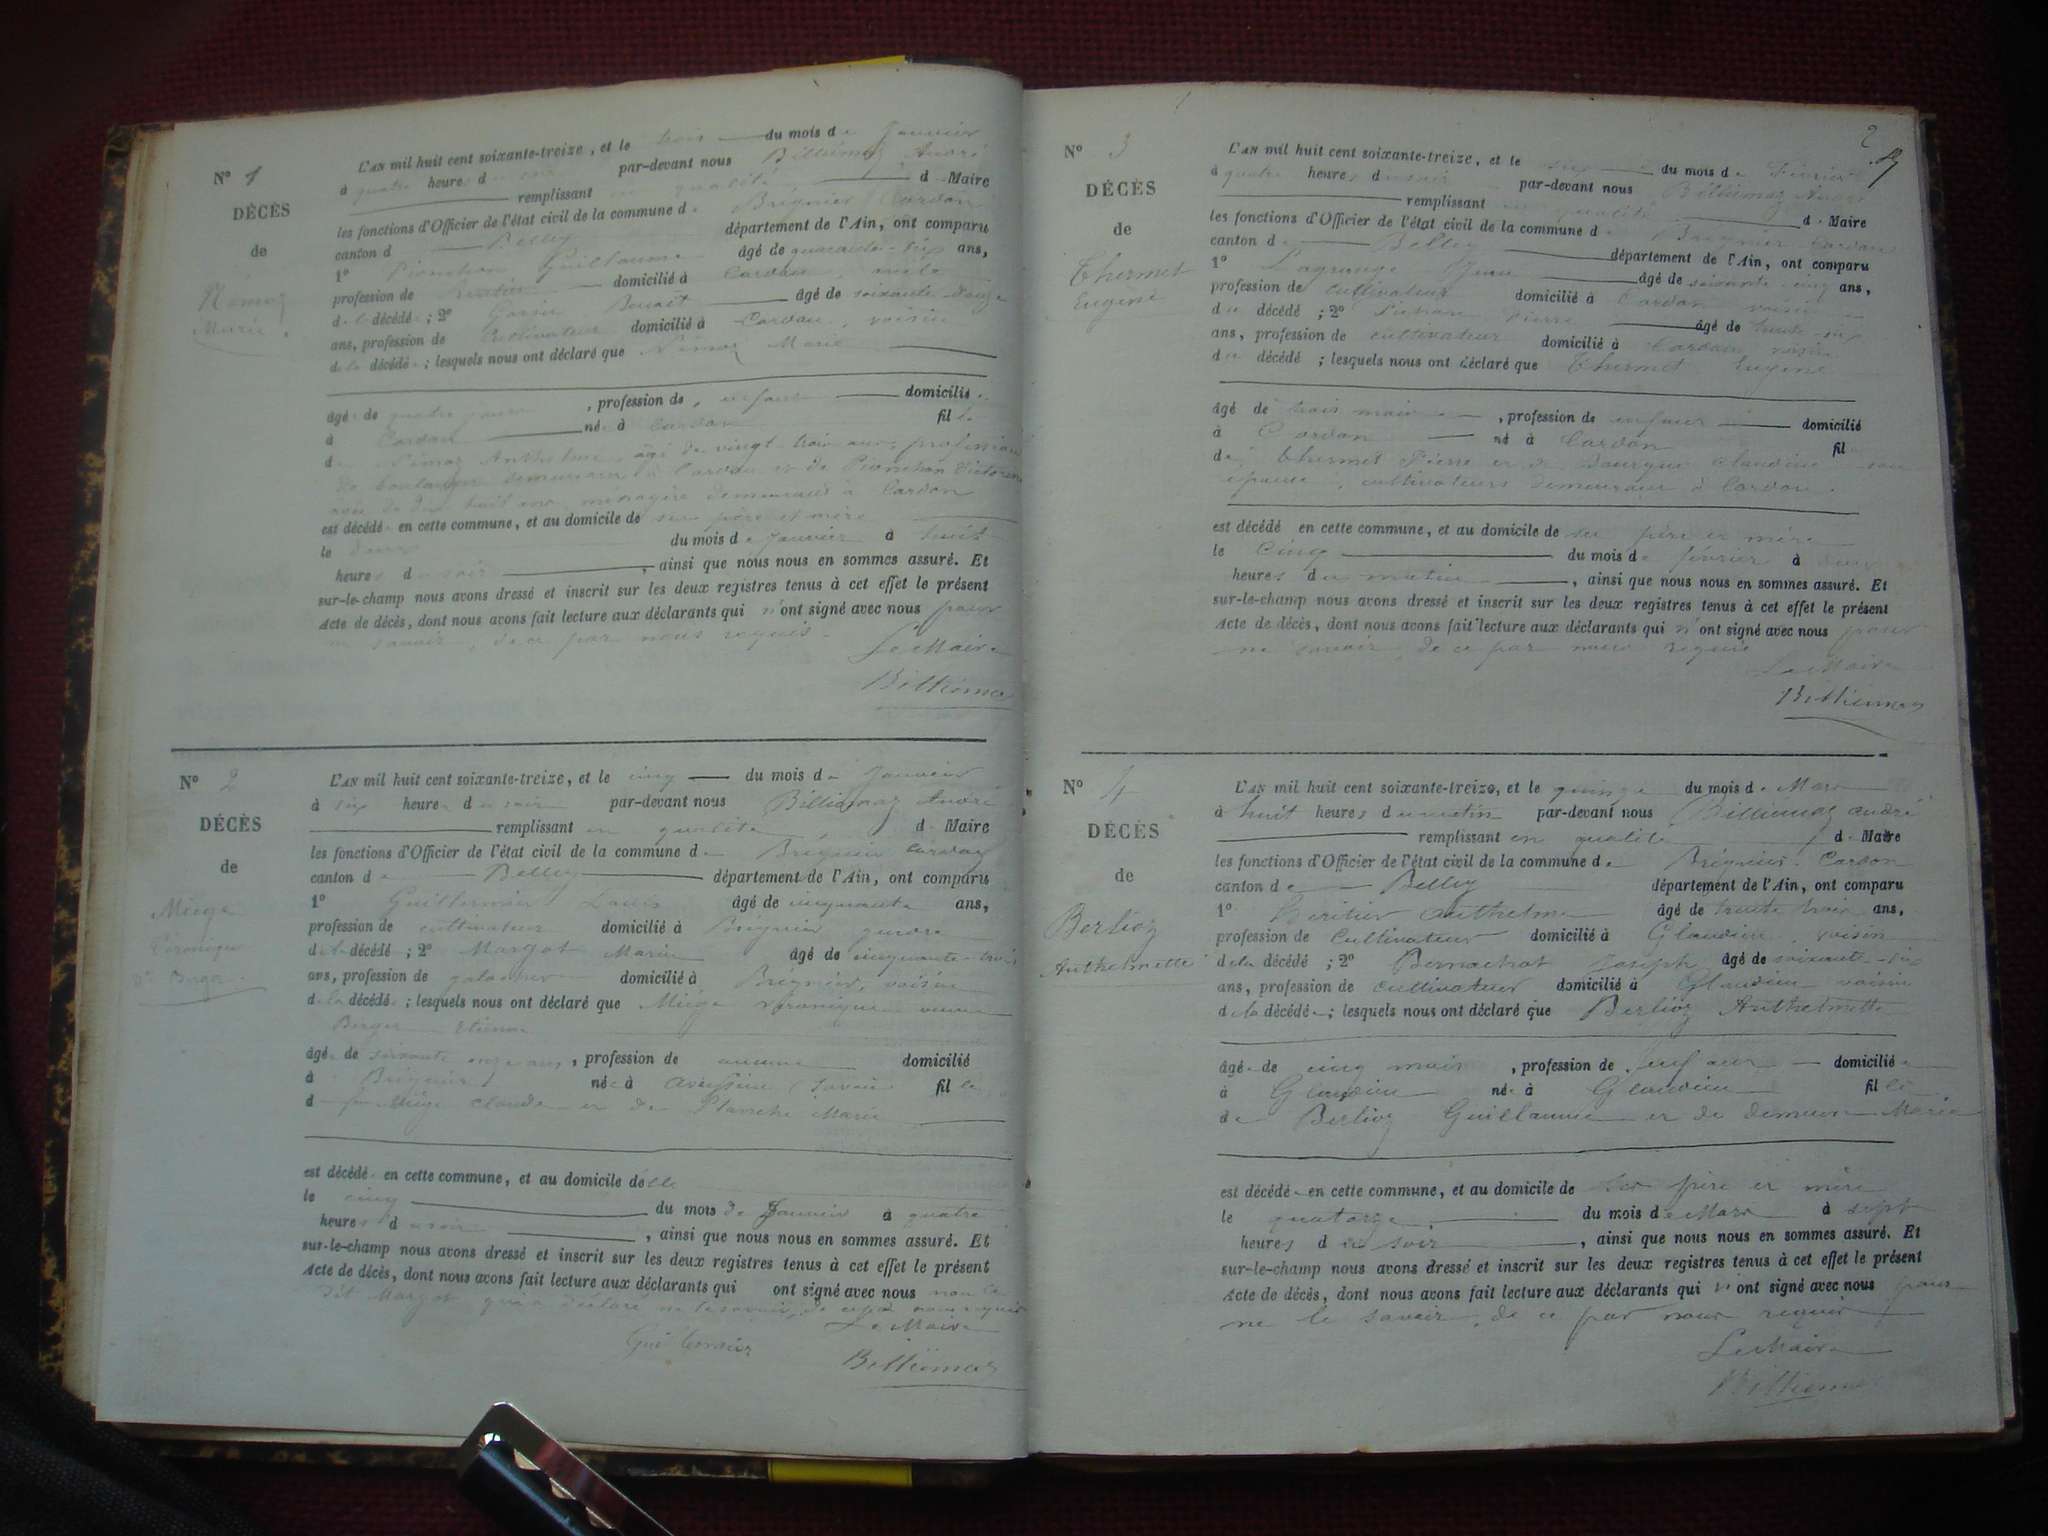 N° 1
DÉCÈS
de
Marie
L'AN mil huit cent soixante-treize, et le trois du mois de Janvier
à quatre heures du soir par-devant nous Billiémaz André
remplissant en qualité de Maire
les fonctions d'Officier de l'état civil de la commune de Brégnier Cordon
canton d Belley département de l'Ain, ont comparu
1° Pionchon Guillaume âgé de quarante-six ans,
profession de domicilié à Cordon
de la décédée ; 2° Benoit âgé de soixante
ans, profession de Cultivateur domicilié à Cordon, voisin
de la décédée ; lesquels nous ont déclaré que Marie
âgée de quatre jours, profession de enfant domiciliée
à Cordon née à Cordon fille
de Anthelme, âgé de vingt trois ans, profession
de boulanger demeurant à Cordon et de Pionchon
huit ans ménagère demeurant à Cordon
est décédée en cette commune, et au domicile de ses père et mère
le deux du mois de Janvier à huit
heures du soir, ainsi que nous nous en sommes assuré. Et
sur-le-champ nous avons dressé et inscrit sur les deux registres tenus à cet effet le présent
Acte de décès, dont nous avons fait lecture aux déclarants qui n'ont signé avec nous pour
ne savoir, de ce par nous requis.
Le Maire
Billiémaz
N° 2
DÉCÈS
de
Miége
Véronique
Ve Berger
L'AN mil huit cent soixante-treize, et le cinq du mois de Janvier
à six heures du soir par-devant nous Billiémaz André
remplissant en qualité de Maire
les fonctions d'Officier de l'état civil de la commune de Brégnier Cordon
canton de Belley département de l'Ain, ont comparu
1° Guillermier Louis âgé de cinquante ans,
profession de cultivateur domicilié à Brégnier gendre
de la décédée ; 2° Margot Marin âgé de cinquante-trois
ans, profession de domicilié à Brégnier, voisin
de la décédée ; lesquels nous ont déclaré que Miége Véronique veuve
Berger Etienne
âgée de soixante onze ans, profession de aucune domiciliée
à Brégnier née à Savoie fille
d feu Miége Claude et de Planche Marie
est décédée en cette commune, et au domicile d'elle
le cinq du mois de Janvier à quatre
heures du soir, ainsi que nous nous en sommes assuré. Et
sur-le-champ nous avons dressé et inscrit sur les deux registres tenus à cet effet le présent
Acte de décès, dont nous avons fait lecture aux déclarants qui ont signé avec nous non le
dit Margot qui a déclaré ne le savoir, de ce par nous requis
Le Maire
Guillermier Billiémaz
2
N° 3
DÉCÈS
de
Thermet
Eugène
L'AN mil huit cent soixante-treize, et le six du mois de Février
à quatre heures du soir par-devant nous Billiémaz André
remplissant en qualité de Maire
les fonctions d'Officier de l'état civil de la commune de Brégnier Cordon
canton de Belley département de l'Ain, ont comparu
1° Lagrange âgé de soixante-cinq ans,
profession de cultivateur domicilié à Cordon voisin
du décédé ; 2° Pierre âgé de trente-six
ans, profession de cultivateur domicilié à Cordon, voisin
du décédé ; lesquels nous ont déclaré que Thermet Eugène
âgé de trois mois, profession de enfant domicilié
à Cordon né à Cordon fil
de Thermet Pierre et de Claudine son
épouse, cultivateurs demeurant à Cordon.
est décédé en cette commune, et au domicile de ses père et mère
le Cinq du mois de février à deux
heures du matin, ainsi que nous nous en sommes assuré. Et
sur-le-champ nous avons dressé et inscrit sur les deux registres tenus à cet effet le présent
Acte de décès, dont nous avons fait lecture aux déclarants qui n'ont signé avec nous pour
ne savoir de ce par nous requis
Le Maire
Billiémaz
N° 4
DÉCÈS
de
Berlioz
Anthelmette
L'AN mil huit cent soixante-treize, et le quinze du mois de Mars
à huit heures du matin par-devant nous Billiémaz André
remplissant en qualité de Maire
les fonctions d'Officier de l'état civil de la commune de Brégnier-Cordon
canton de Belley département de l'Ain, ont comparu
1° Héritier Anthelme âgé de trente trois ans,
profession de Cultivateur domicilié à Glandieu, voisin
de la décédée ; 2° Joseph âgé de soixante-six
ans, profession de cultivateur domicilié à Glandieu voisin
de la décédée ; lesquels nous ont déclaré que Berlioz Anthelmette
âgée de cinq mois, profession de enfant domiciliée
à Glandieu née à Glandieu fille
de Berlioz Guillaume et de Demeure Marie
est décédée en cette commune, et au domicile de ses père et mère
le quatorze du mois de Mars à sept
heures du soir, ainsi que nous nous en sommes assuré. Et
sur-le-champ nous avons dressé et inscrit sur les deux registres tenus à cet effet le présent
Acte de décès, dont nous avons fait lecture aux déclarants qui n'ont signé avec nous pour
ne le savoir, de ce par nous requis
Le Maire
Billiémaz